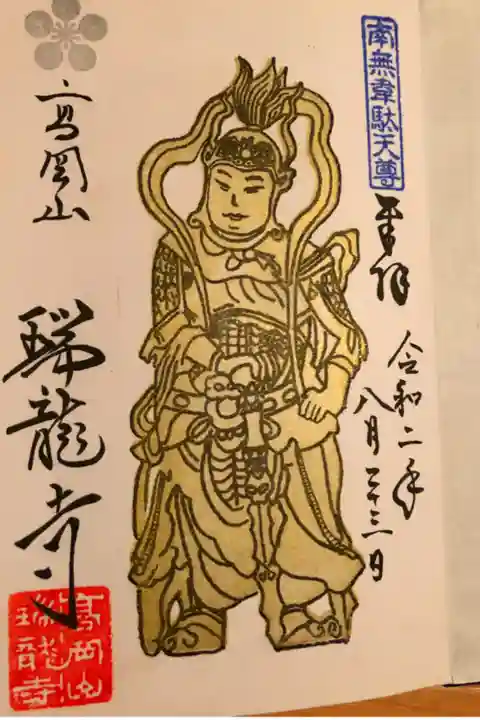 南無韋駄天尊
奉拝
令和二年
八月二十三日
高岡山
瑞龍寺
高岡山
瑞龍寺